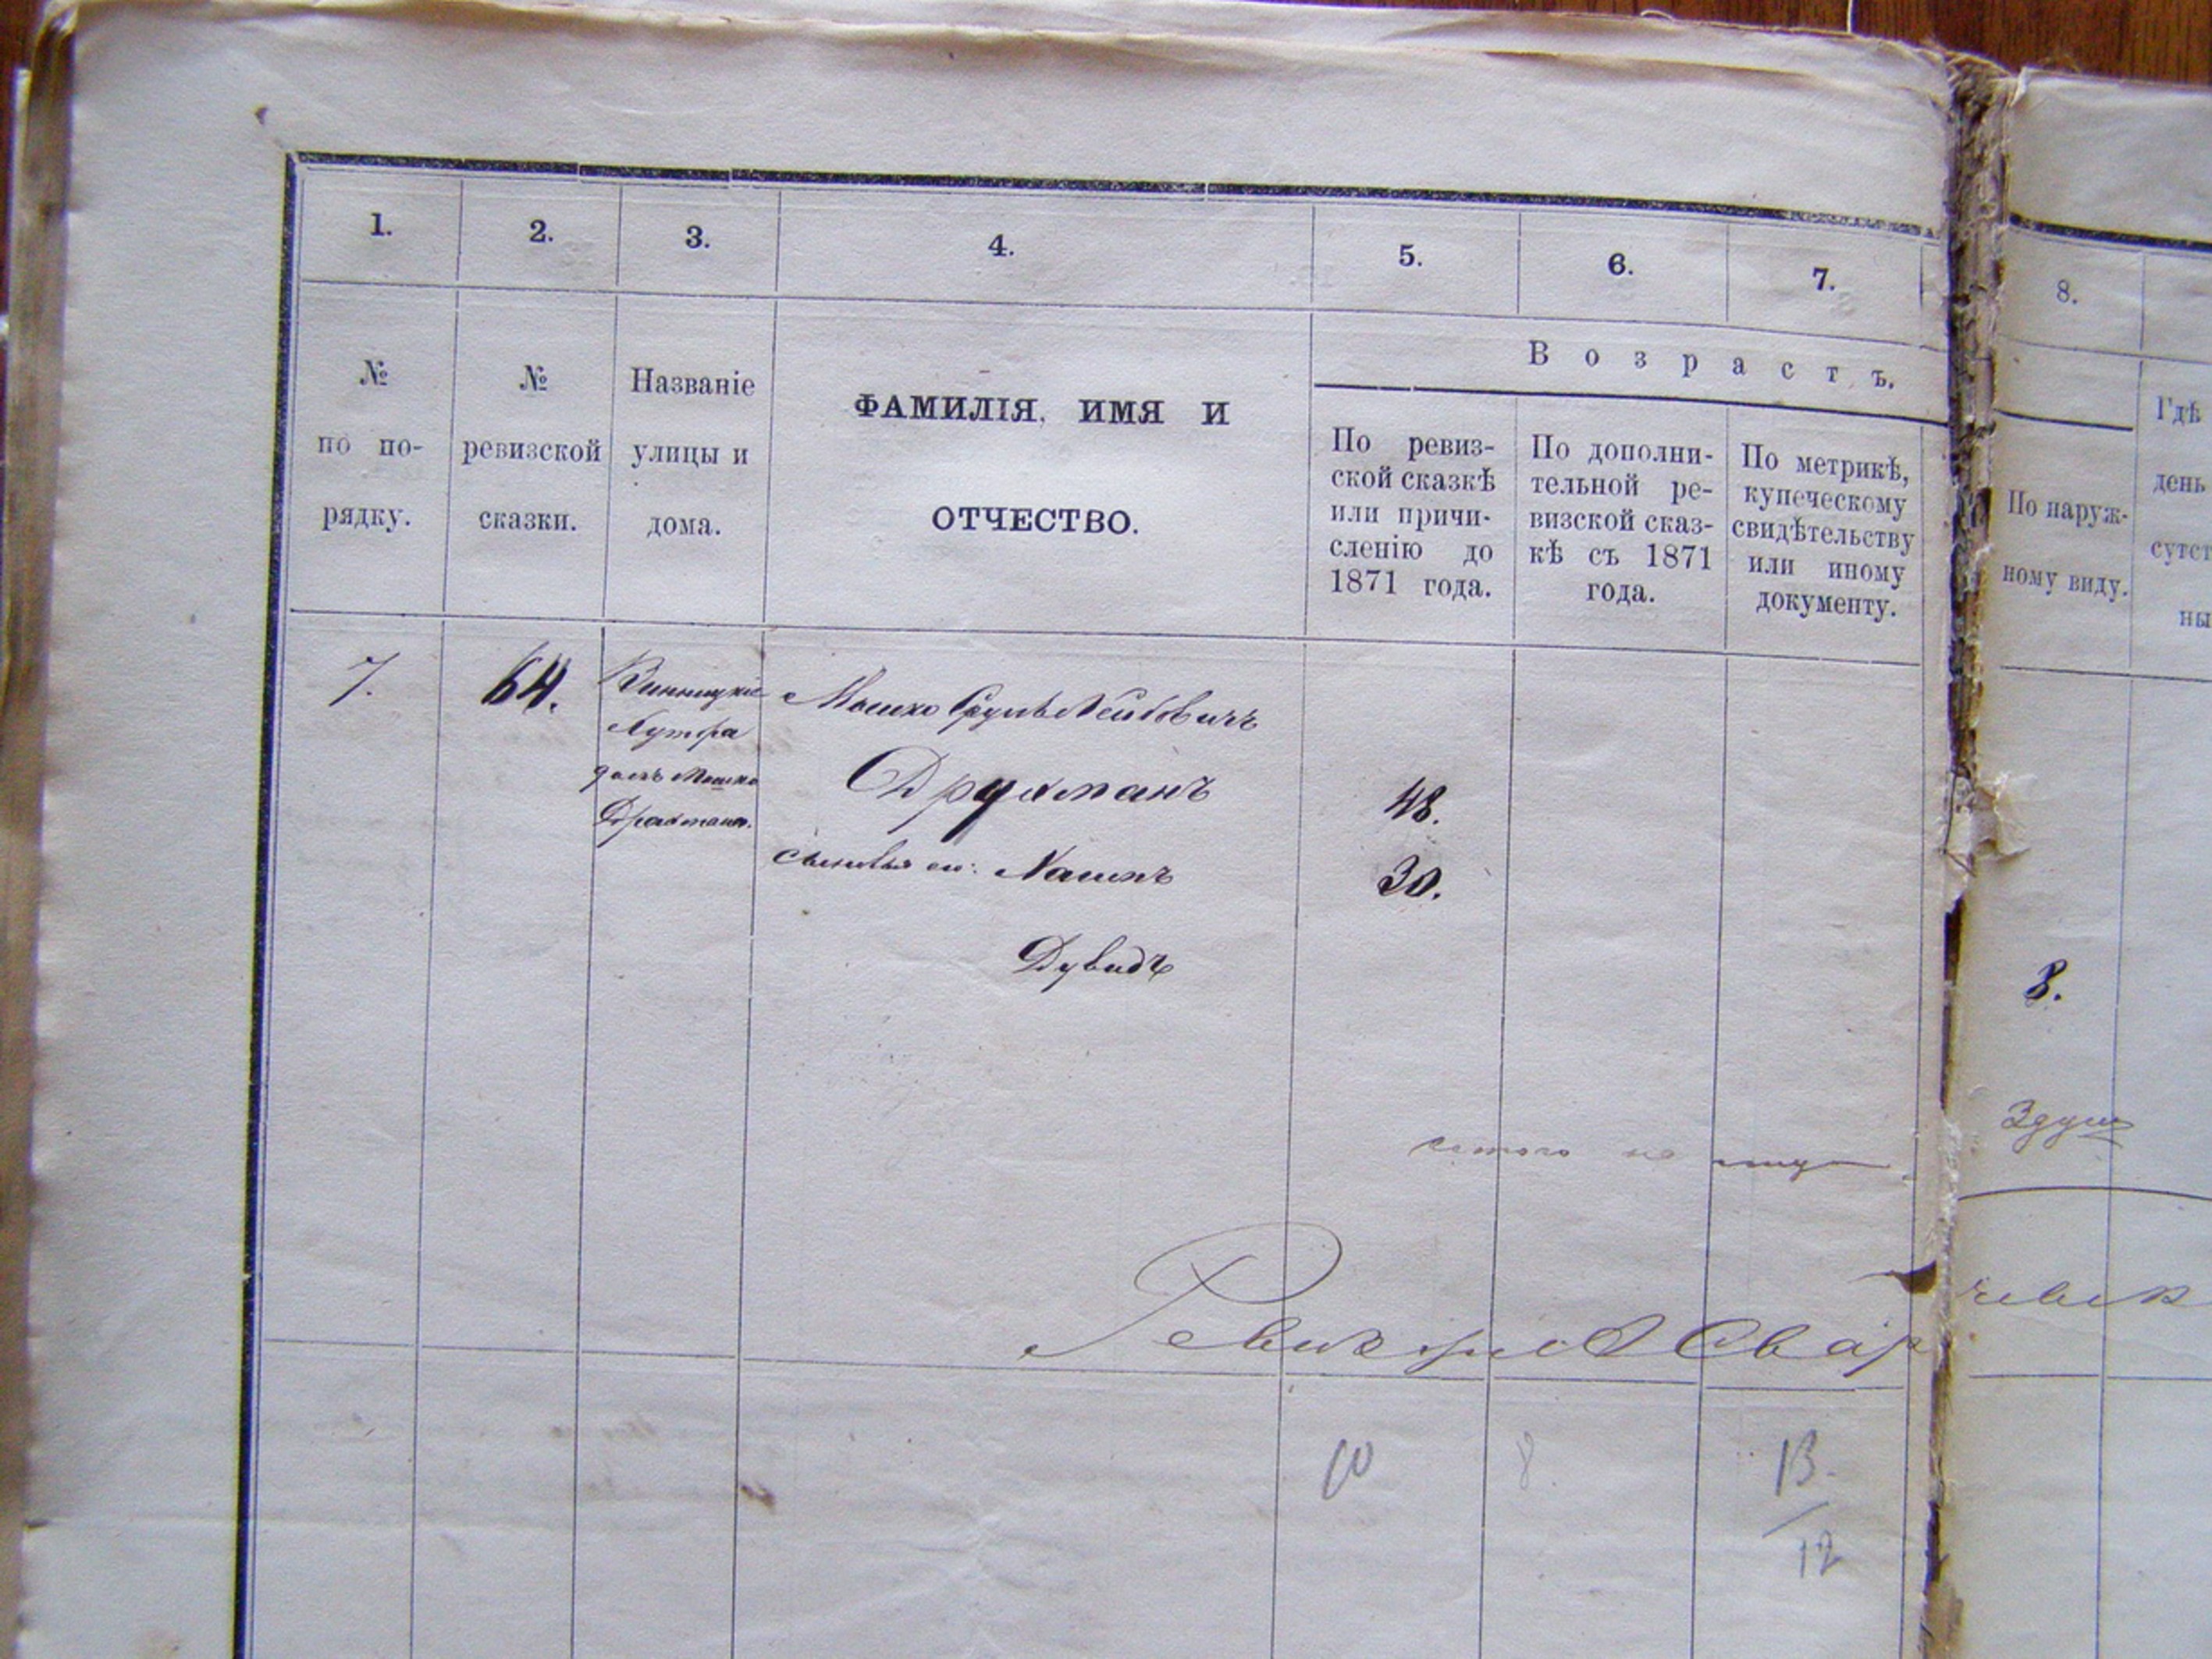 1. 2. 3. 4. 5. 6. 7. 8.
№
по по-
рядку.
№
ревизской
сказки.
Названіе
улицы и
дома.
ФАМИЛІЯ, ИМЯ И
ОТЧЕСТВО.
Возрастъ.
По ревиз-
ской сказкѣ
или причи-
сленію до
1871 года.
По дополни-
тельной ре-
визской сказ-
кѣ съ 1871
года.
По метрикѣ,
купеческому
свидѣтельству
или иному
документу.
По наруж-
ному виду.
Гдѣ
день
сутст
ны
7.
64.
Винницкіе
Хутора
домъ Мошка
Мошко Сруль Лейбовичъ
Друхманъ 48.
Сыновья его: 30.
Дувидъ 8.
10 8. 13.
12